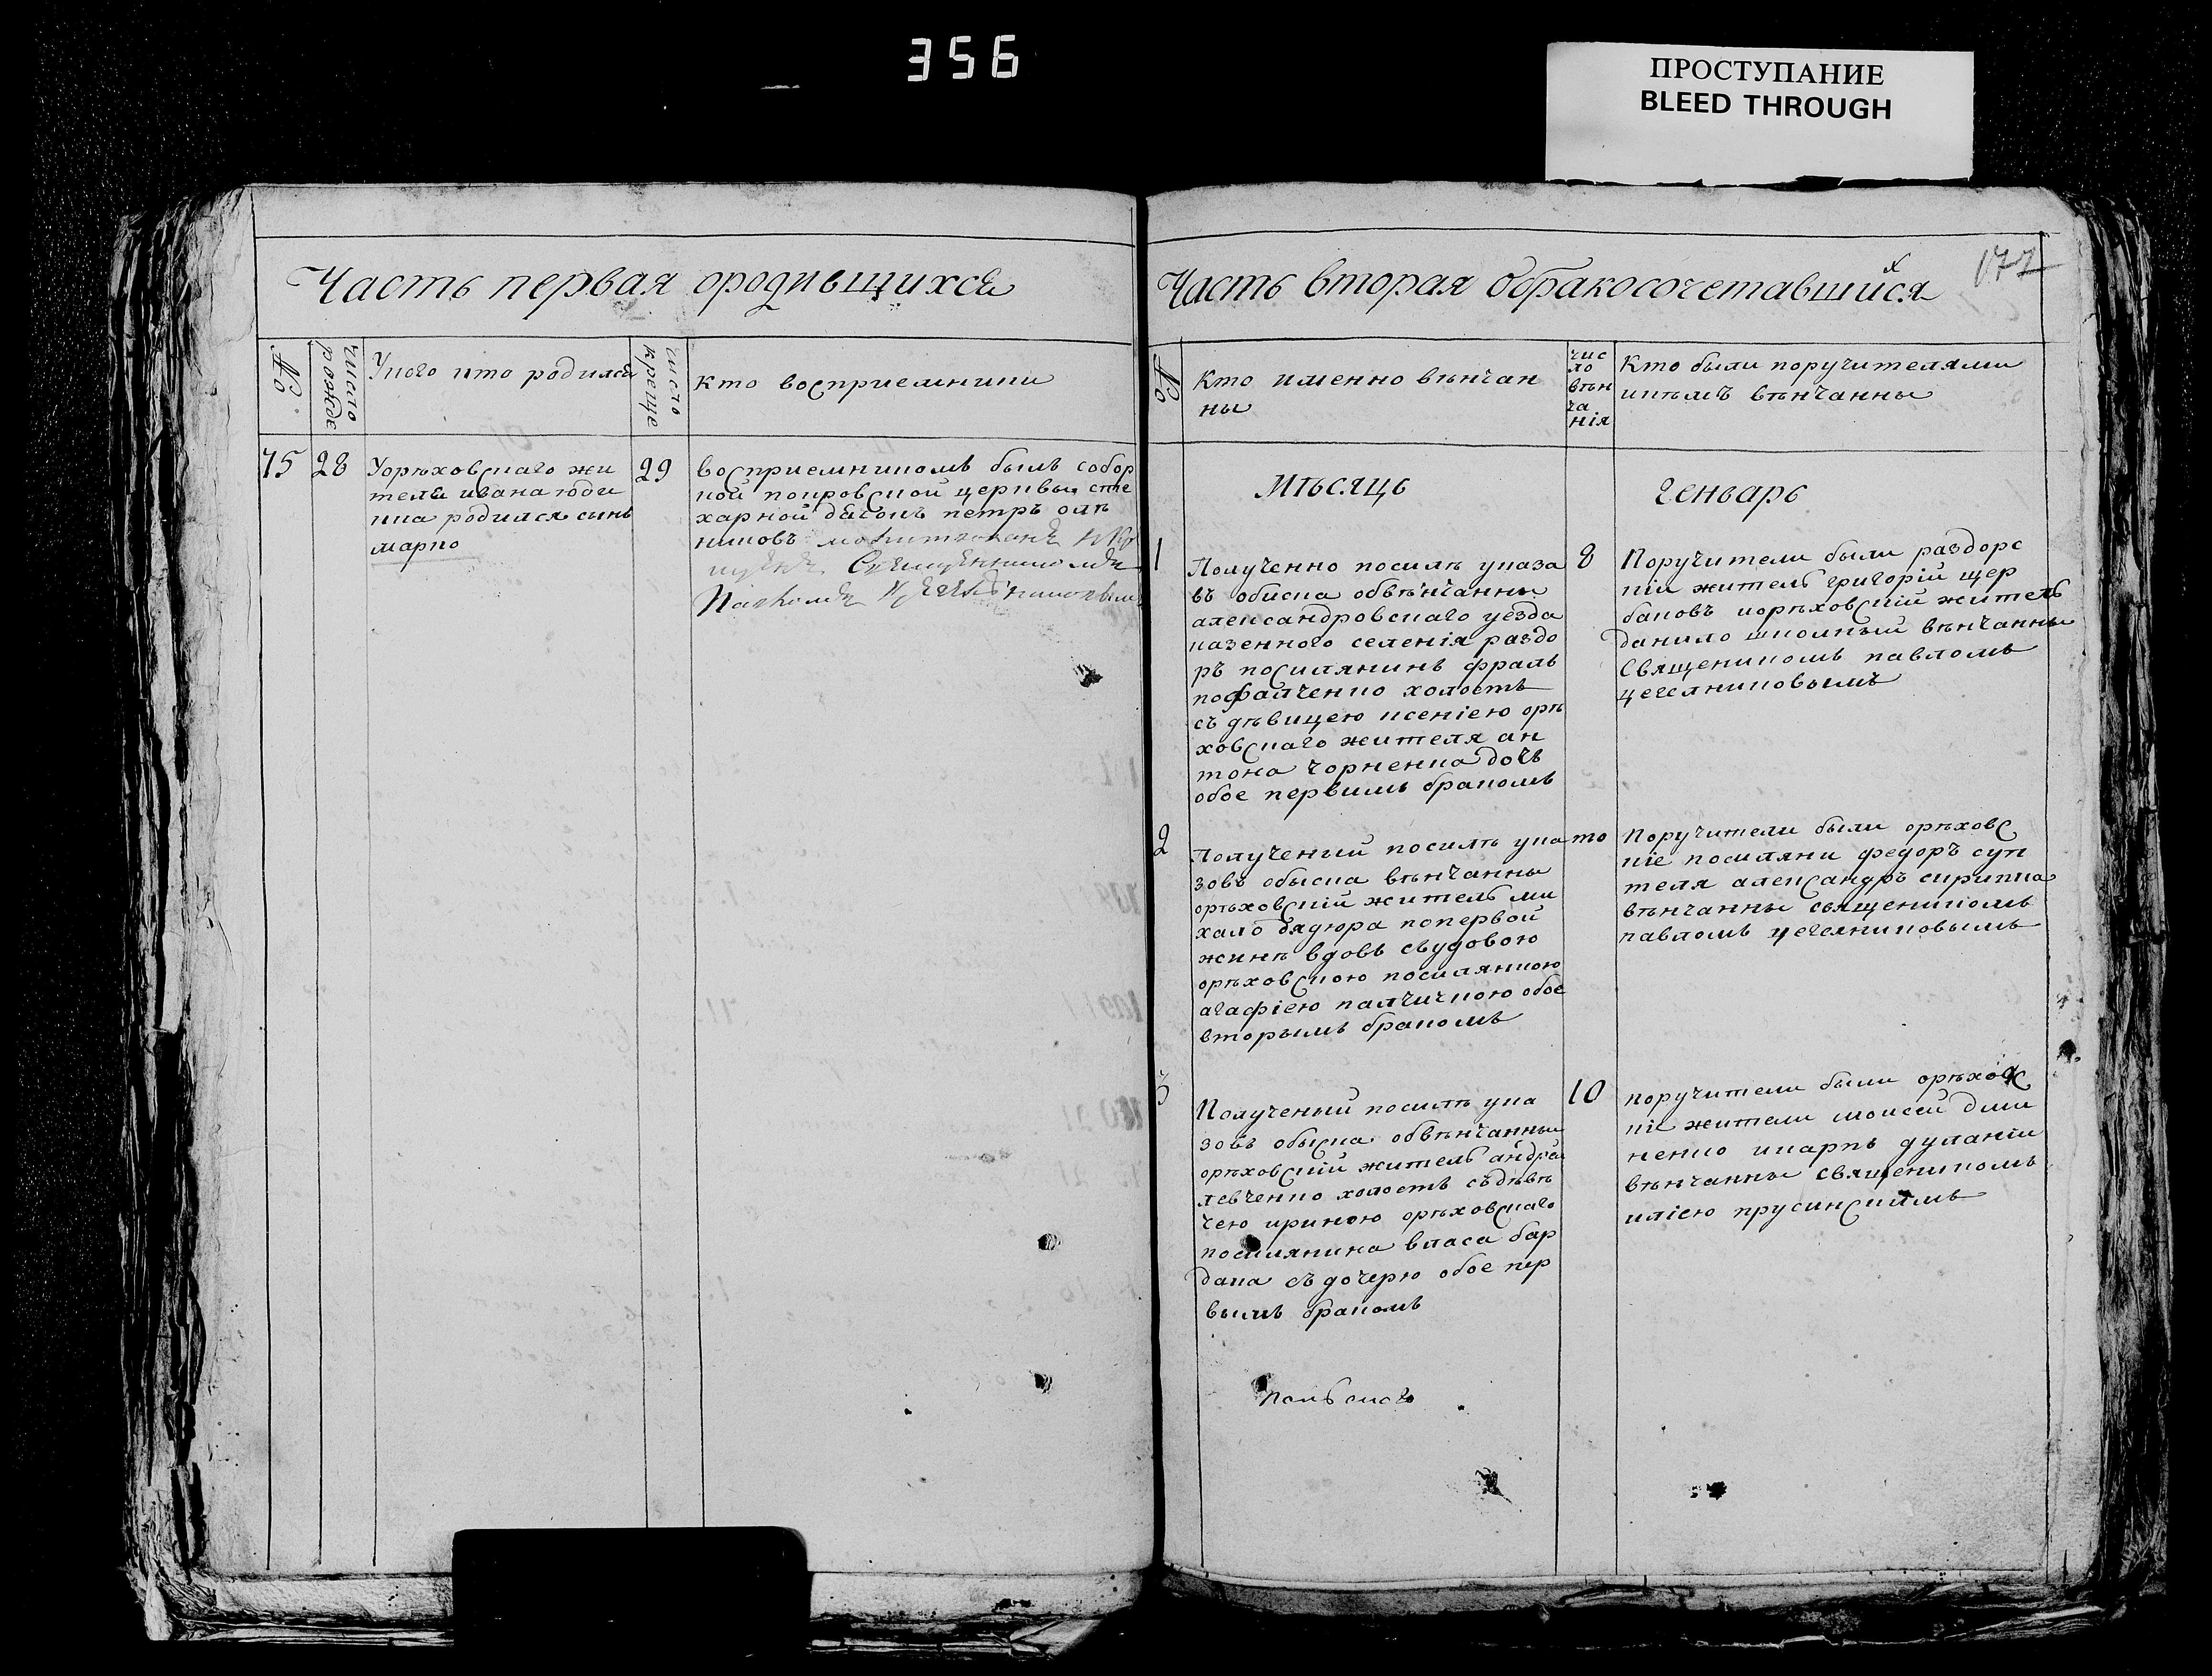 356
ПРОСТУПАНИЕ
BLEED THROUGH
Часть первая ородившихся
№
число рожде
Укого кто родился
число креще
кто восприемники
75
28
Уорѣховскаго жи
теля ивана юди
ка родился сынъ
марко
29
восприемникомъ былъ собор
ной покровской церкви
харной дячокъ петръ
Священникомъ
Павломъ
177
Часть вторая обракосочетавшийся
х
№
Кто именно вѣнчан
ны
чис
ло
вѣн
ча
нія
Кто были поручителями
икѣмъ вѣнчанны
Мѣсяцъ
Генварь
1
Полученно посилѣ указа
въ обиска обвѣнчанны
александровскаго уезда
казенного селенія раздо
ръ посилянинъ фролъ
кофалченко холостъ
съ дѣвицею ксеніею орѣ
ховскаго жителя ан
тона чорненка дочъ
обое первимъ бракомъ
8
Поручители были раздорс
кіи житель григорій щер
баковъ иорѣховскій житель
данило шкомный вѣнчанны
Священикомъ павломъ
цегелниковымъ
2
Получений посилѣ ука
зовъ обыска вѣнчанны
орѣховскій житель ми
хало бядюра попервой
жинѣ вдовъ съудовою
орѣховскою посилянкою
агафіею палчичкою обое
вторымъ бракомъ
то
Поручители были орѣховс
кіе посиляни федоръ суп
теля александръ скрипка
вѣнчанны священикомъ
павломъ цегелниковымъ
3
Полученый посилѣ ука
зовъ обыска обвѣнчанны
орѣховскій житель андрей
левченко холостъ съдѣвѣ
чею ириною орѣховскаго
посилянина власа бар
дака съ дочерю обое пер
вымъ бракомъ
10
поручители были орѣховс
кіе жители моисей дми
ненко икарпъ дуланіи
вѣнчанны священикомъ
иліею прусинскимъ